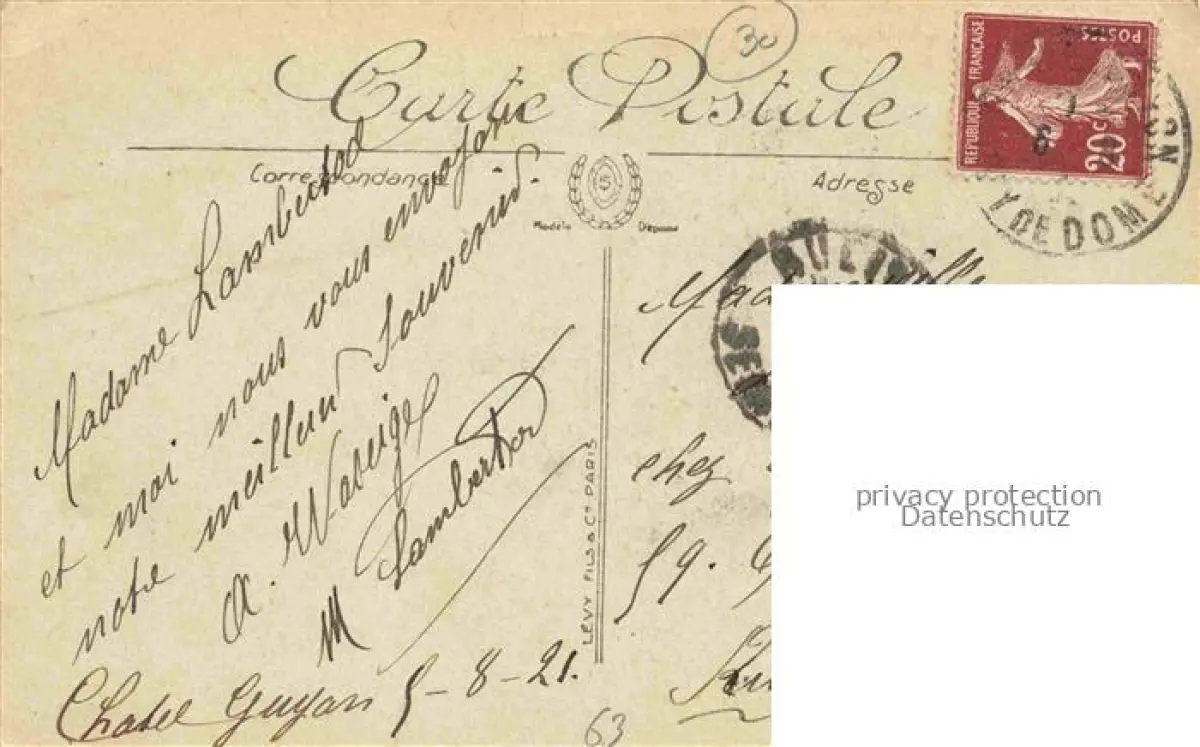 30
Carte Postale
Correspondance
Adresse
Modèle Déposé
S
RÉPUBLIQUE FRANÇAISE
POSTES
20c
Y DE DOME
Madame Lambert
et moi nous vous envoyons
notre meilleur souvenir.
A.
M Lambert
Chatel Guyon 5-8-21.
LÉVY FILS & Co PARIS
chez
59.
63
privacy protection
Datenschutz